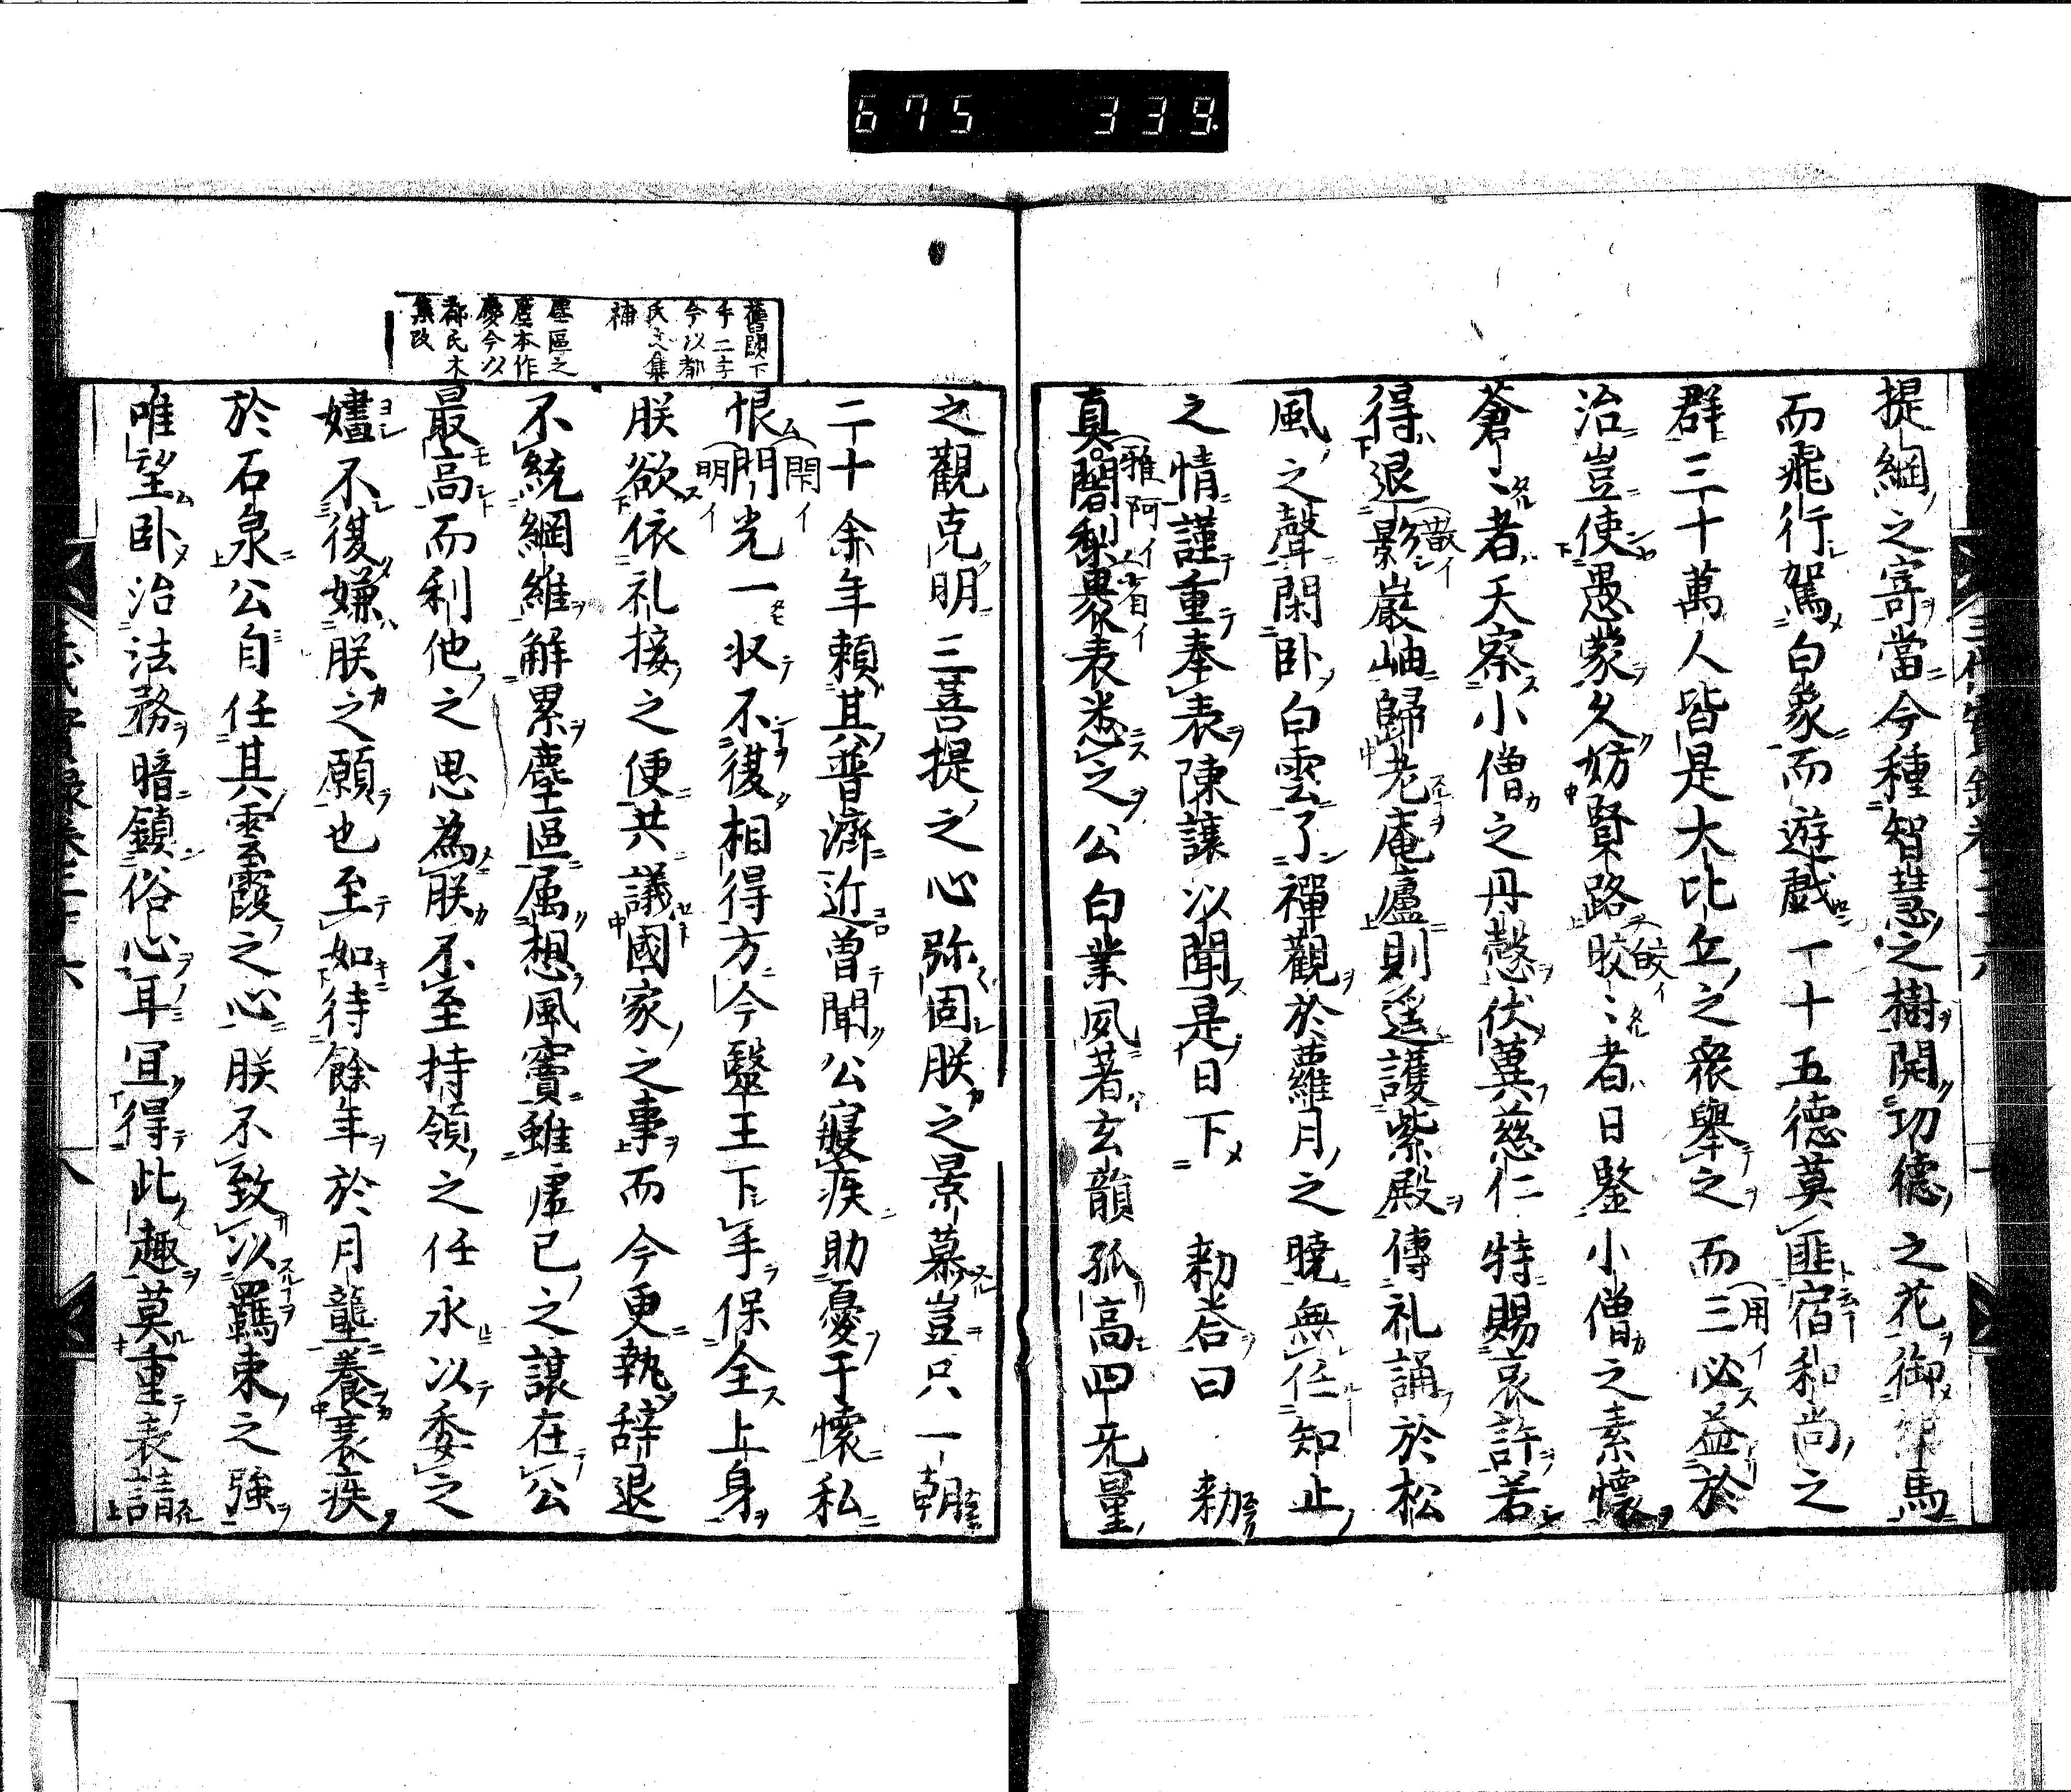 675 339
提綱之寄當今種智慧之樹開功德之花御緋馬
而飛行駕白象而遊戯一十五德莫匪宿和尚之
群三十萬人皆是大比丘之衆舉之而三必益於
治豈使愚蒙久妨賢路皎〻者日鑒小僧之素懷
蒼〻者天察小僧之丹慤伏冀慈仁特賜哀許若
得退影巖岫歸老庵廬則遥護紫殿傳礼誦於松
風之聲閑卧白雲了禪觀於蘿月之曉無任知止
之情謹重奉表陳讓以聞是日下 勅荅曰 勅
真闍梨異表悉之公白業夙著玄韻孤高四无量
之觀克明三菩提之心弥固朕之景慕豈只一朝
二十余年賴其普濟近曽聞公寢疾助憂于懷私
恨閇光一収不復相得方今毉王下手保全上身
朕欲依礼接之便共議國家之事而今更執辞退
不統綱維解累塵區属想風竇雖虚已之謀在公
最高而利他之思為朕不至持領之任永以委之
嫿不復嫌朕之願也至如待餘年於月龕養衰疾
於石泉公自任其雲霞之心朕不致以羈束之強
唯望卧治法務暗鎮俗心耳冝得此趣莫重表請
舊闕下
手二字
今以都
氏文集
補
塵區之
塵本作
慶今以
都氏木
集改
(用イ
(皎イ
(蔽イ
(雅阿イ
(省イ
(閇イ
(明イ
三代實録卷三十六
八